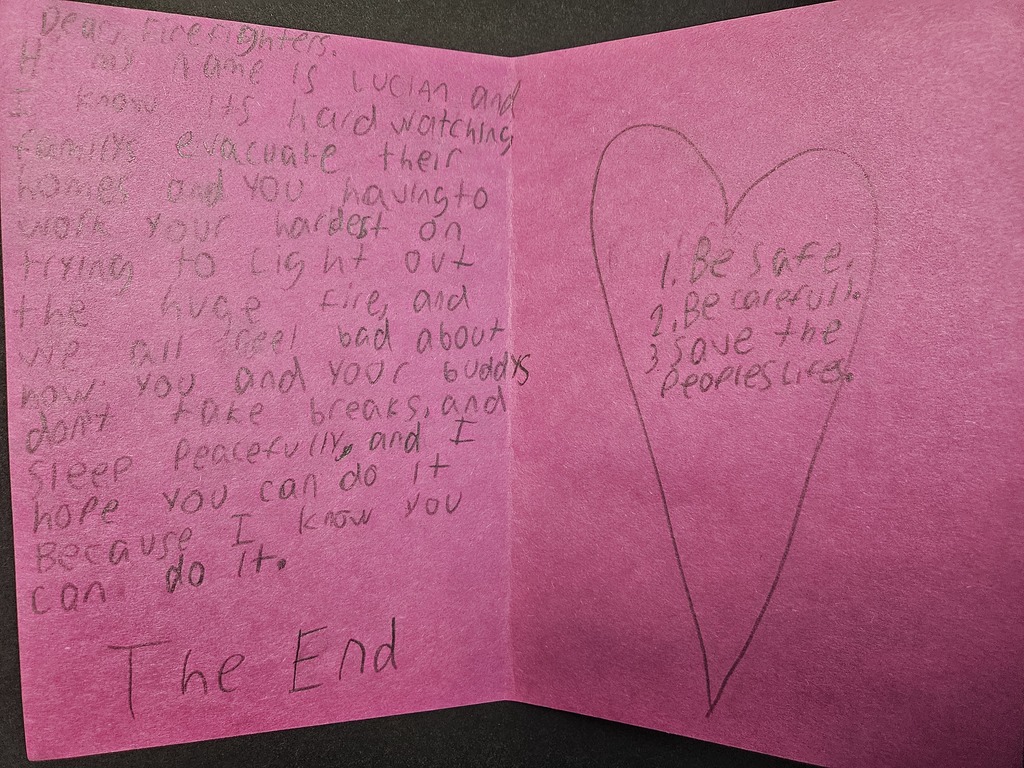 Dear, Firefighters.
Hi my name is LUCIAN and
I know its hard watching
familys evacuate their
homes and you having to
work your hardest on
trying to Light out
the huge fire, and
we all feel bad about
how you and your buddys
don't take breaks, and
sleep peacefully, and I
hope you can do it
Because I know you
can do it.
The End
1. Be safe.
2. Be carefull.
3. save the
peoples Lifes.